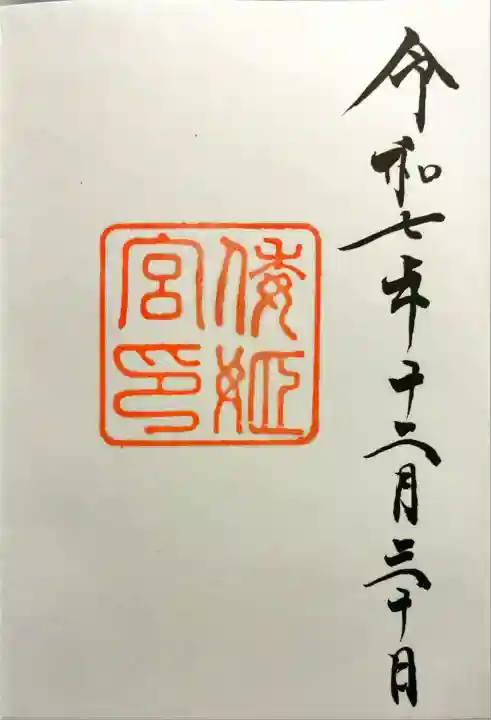 令和七年十二月三十日
倭姫
宮印